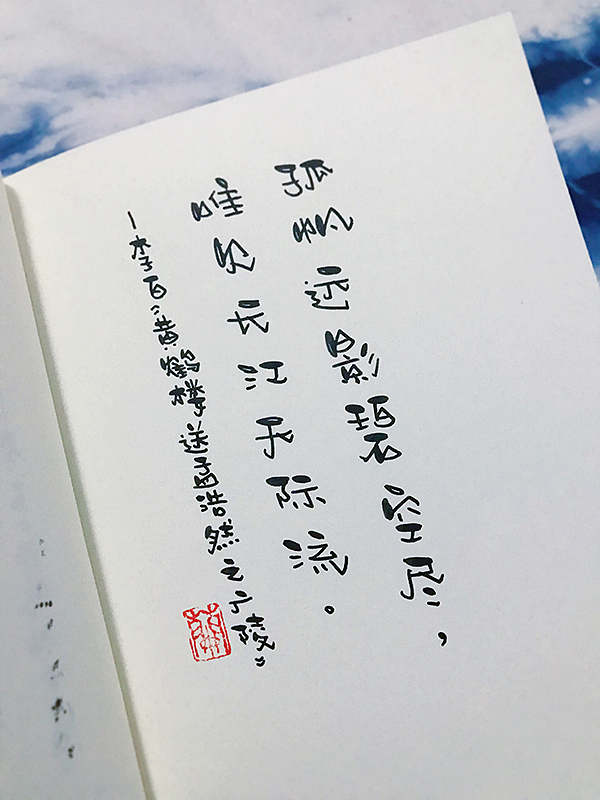 孤帆远影碧空尽，
唯见长江天际流。
—李白〈黄鹤楼送孟浩然之广陵〉